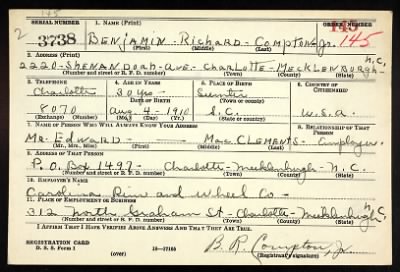 148
SERIAL NUMBER 1. NAME (Print) ORDER NUMBER
2 3738 BENJAMIN - Richard - Compton Jr. 145
(First) (Middle) (Last)
145
2. ADDRESS (Print)
2220 - SHENANDOAH - AVE - CHARLOTTE - MECKLENBURGH - N.C.
(Number and street or R. F. D. number) (Town) (County) (State)
3. TELEPHONE 4. AGE IN YEARS 5. PLACE OF BIRTH 6. COUNTRY OF CITIZENSHIP
Charlotte 30 yrs Sumter
DATE OF BIRTH (Town or county)
8070 Aug - 4 - 1910 S.C. U.S.A.
(Exchange) (Number) (Mo.) (Day) (Yr.) (State or country)
7. NAME OF PERSON WHO WILL ALWAYS KNOW YOUR ADDRESS 8. RELATIONSHIP OF THAT PERSON
Mr. Edward - Mac. CLEMENTS - employer
(Mr., Mrs., Miss) (First) (Middle) (Last)
9. ADDRESS OF THAT PERSON
P.O. Box 1497 - Charlotte - Mecklenburgh - N.C.
(Number and street or R. F. D. number) (Town) (County) (State)
10. EMPLOYER'S NAME
Carolina Rim and Wheel Co -
11. PLACE OF EMPLOYMENT OR BUSINESS
312 North Graham St - Charlotte - Mecklenburgh N.C.
(Number and street or R. F. D. number) (Town) (County) (State)
I AFFIRM THAT I HAVE VERIFIED ABOVE ANSWERS AND THAT THEY ARE TRUE.
REGISTRATION CARD
D. S. S. Form 1 16-17105 B. R. Compton Jr
(Registrant's signature)